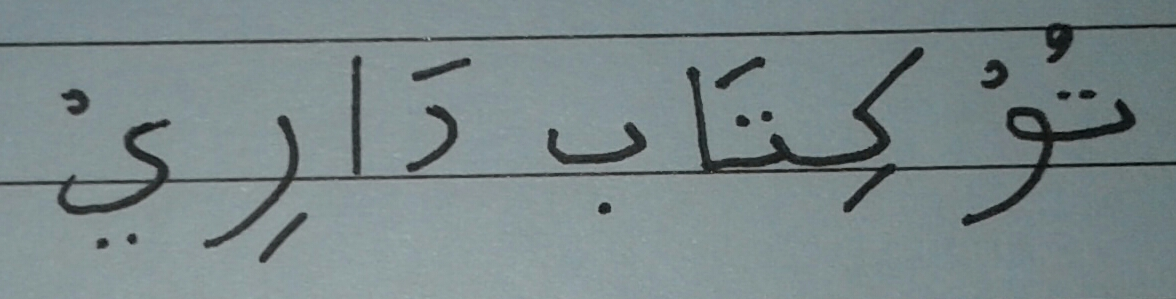 تُوْ كِتَاب دَارِيْ